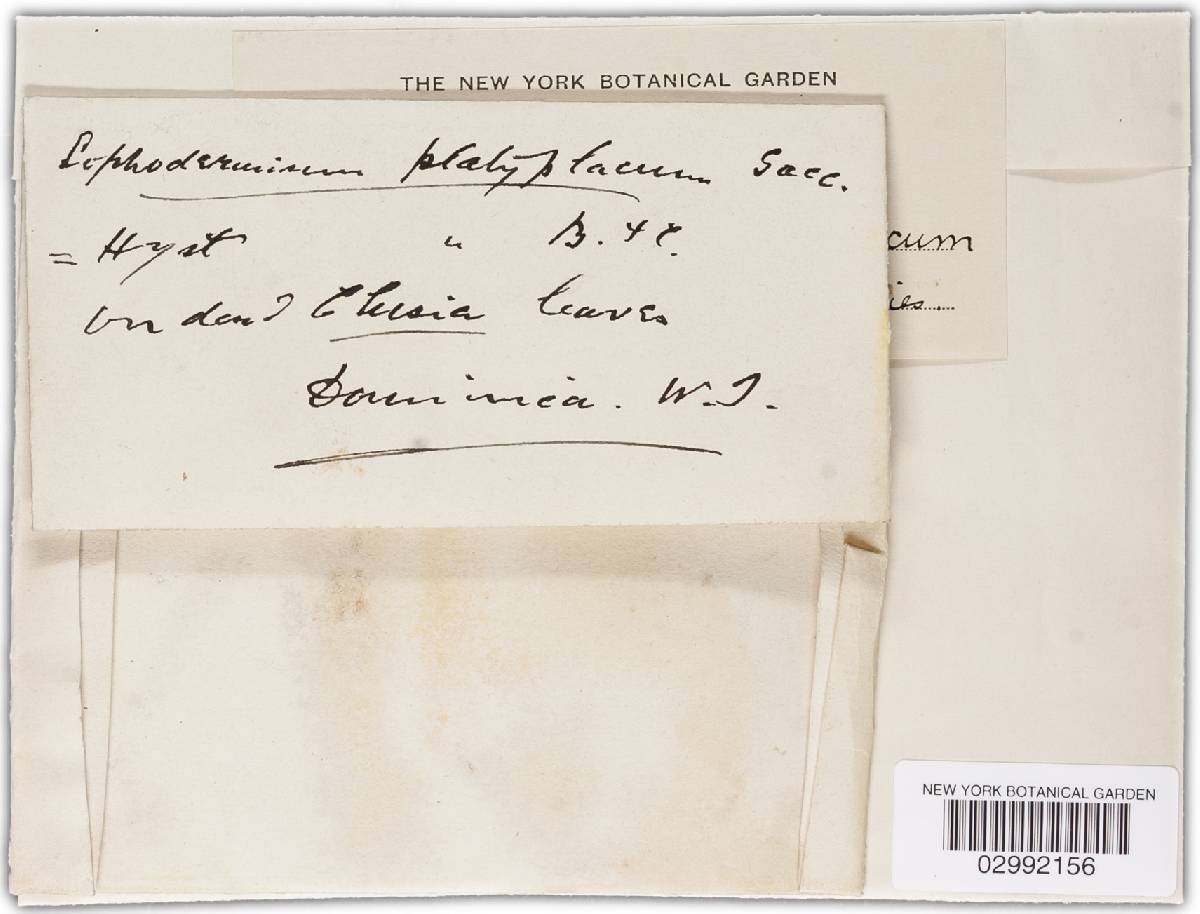 THE NEW YORK BOTANICAL GARDEN
Lophodermium platyplacum Sacc.
= Hyst " B. & C.
cum
On dead Clusia leaves
ies
Dominica. W.I.
NEW YORK BOTANICAL GARDEN
02992156